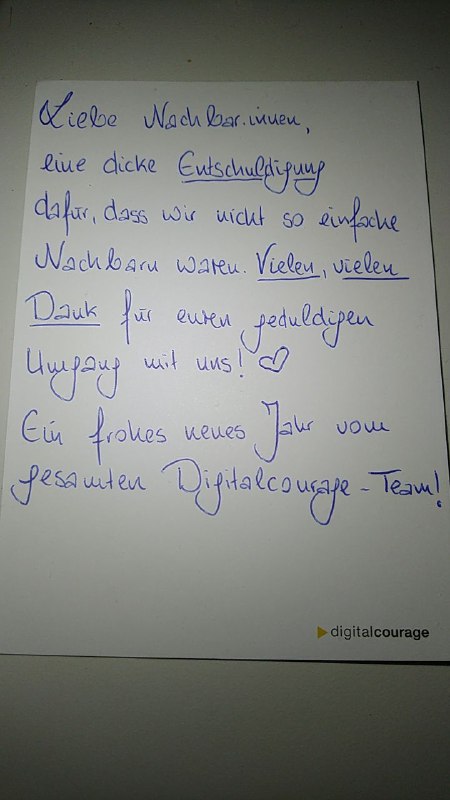 Liebe Nachbar.innen,
eine dicke Entschuldigung
dafür, dass wir nicht so einfache
Nachbarn waren. Vielen, vielen
Dank für euren geduldigen
Umgang mit uns! ♡
Ein frohes neues Jahr vom
gesamten Digitalcourage-Team!
digitalcourage